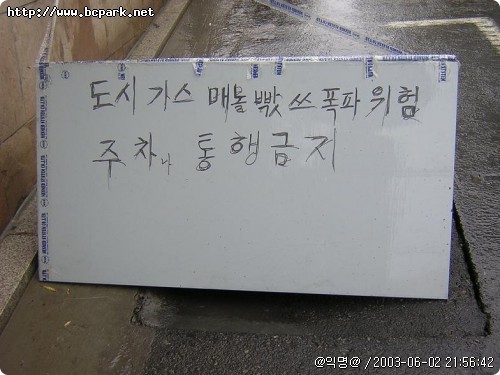 http://www.bcpark.net/
도시 가스 매몰 빢쓰 폭파 위험
주차나 통행금지
@익명@ /2003-06-02 21:56:42